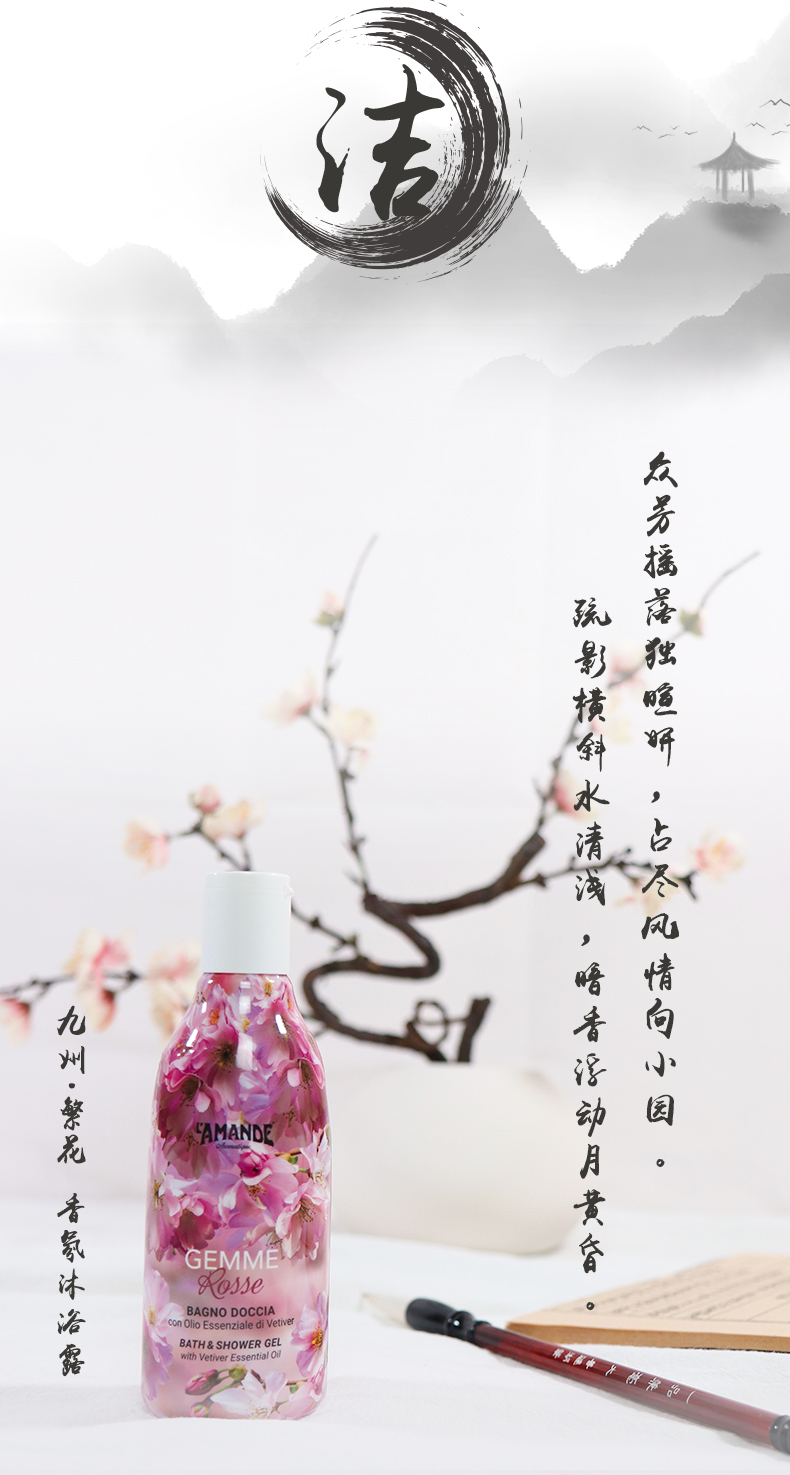 洁
众芳摇落独暄妍，占尽风情向小园。
疏影横斜水清浅，暗香浮动月黄昏。
九州·繁花 香氛沐浴露
L'AMANDE
GEMME
Rosse
BAGNO DOCCIA
con Olio Essenziale di Vetiver
BATH & SHOWER GEL
with Vetiver Essential Oil